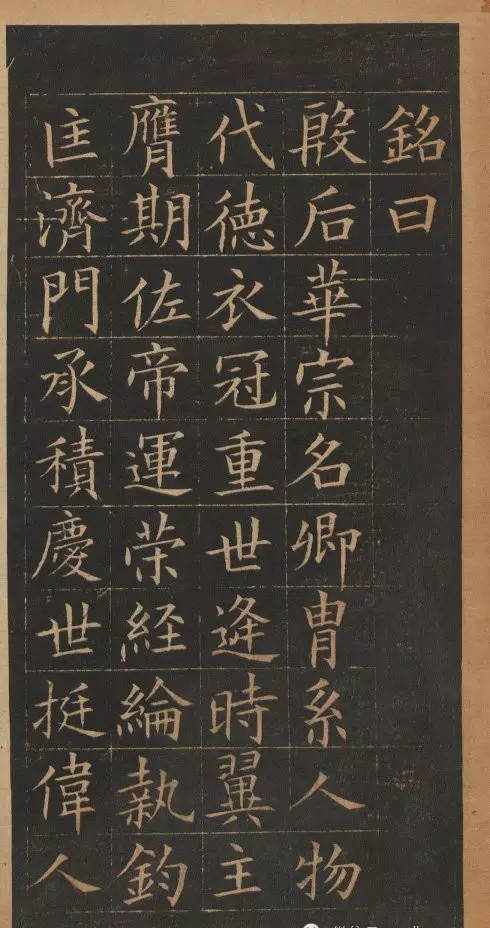 銘曰
殷后華宗名卿冑系人物
代徳衣冠重世逄時翼主
膺期佐帝運荣経綸執鈞
匡濟門承積慶世挺偉人